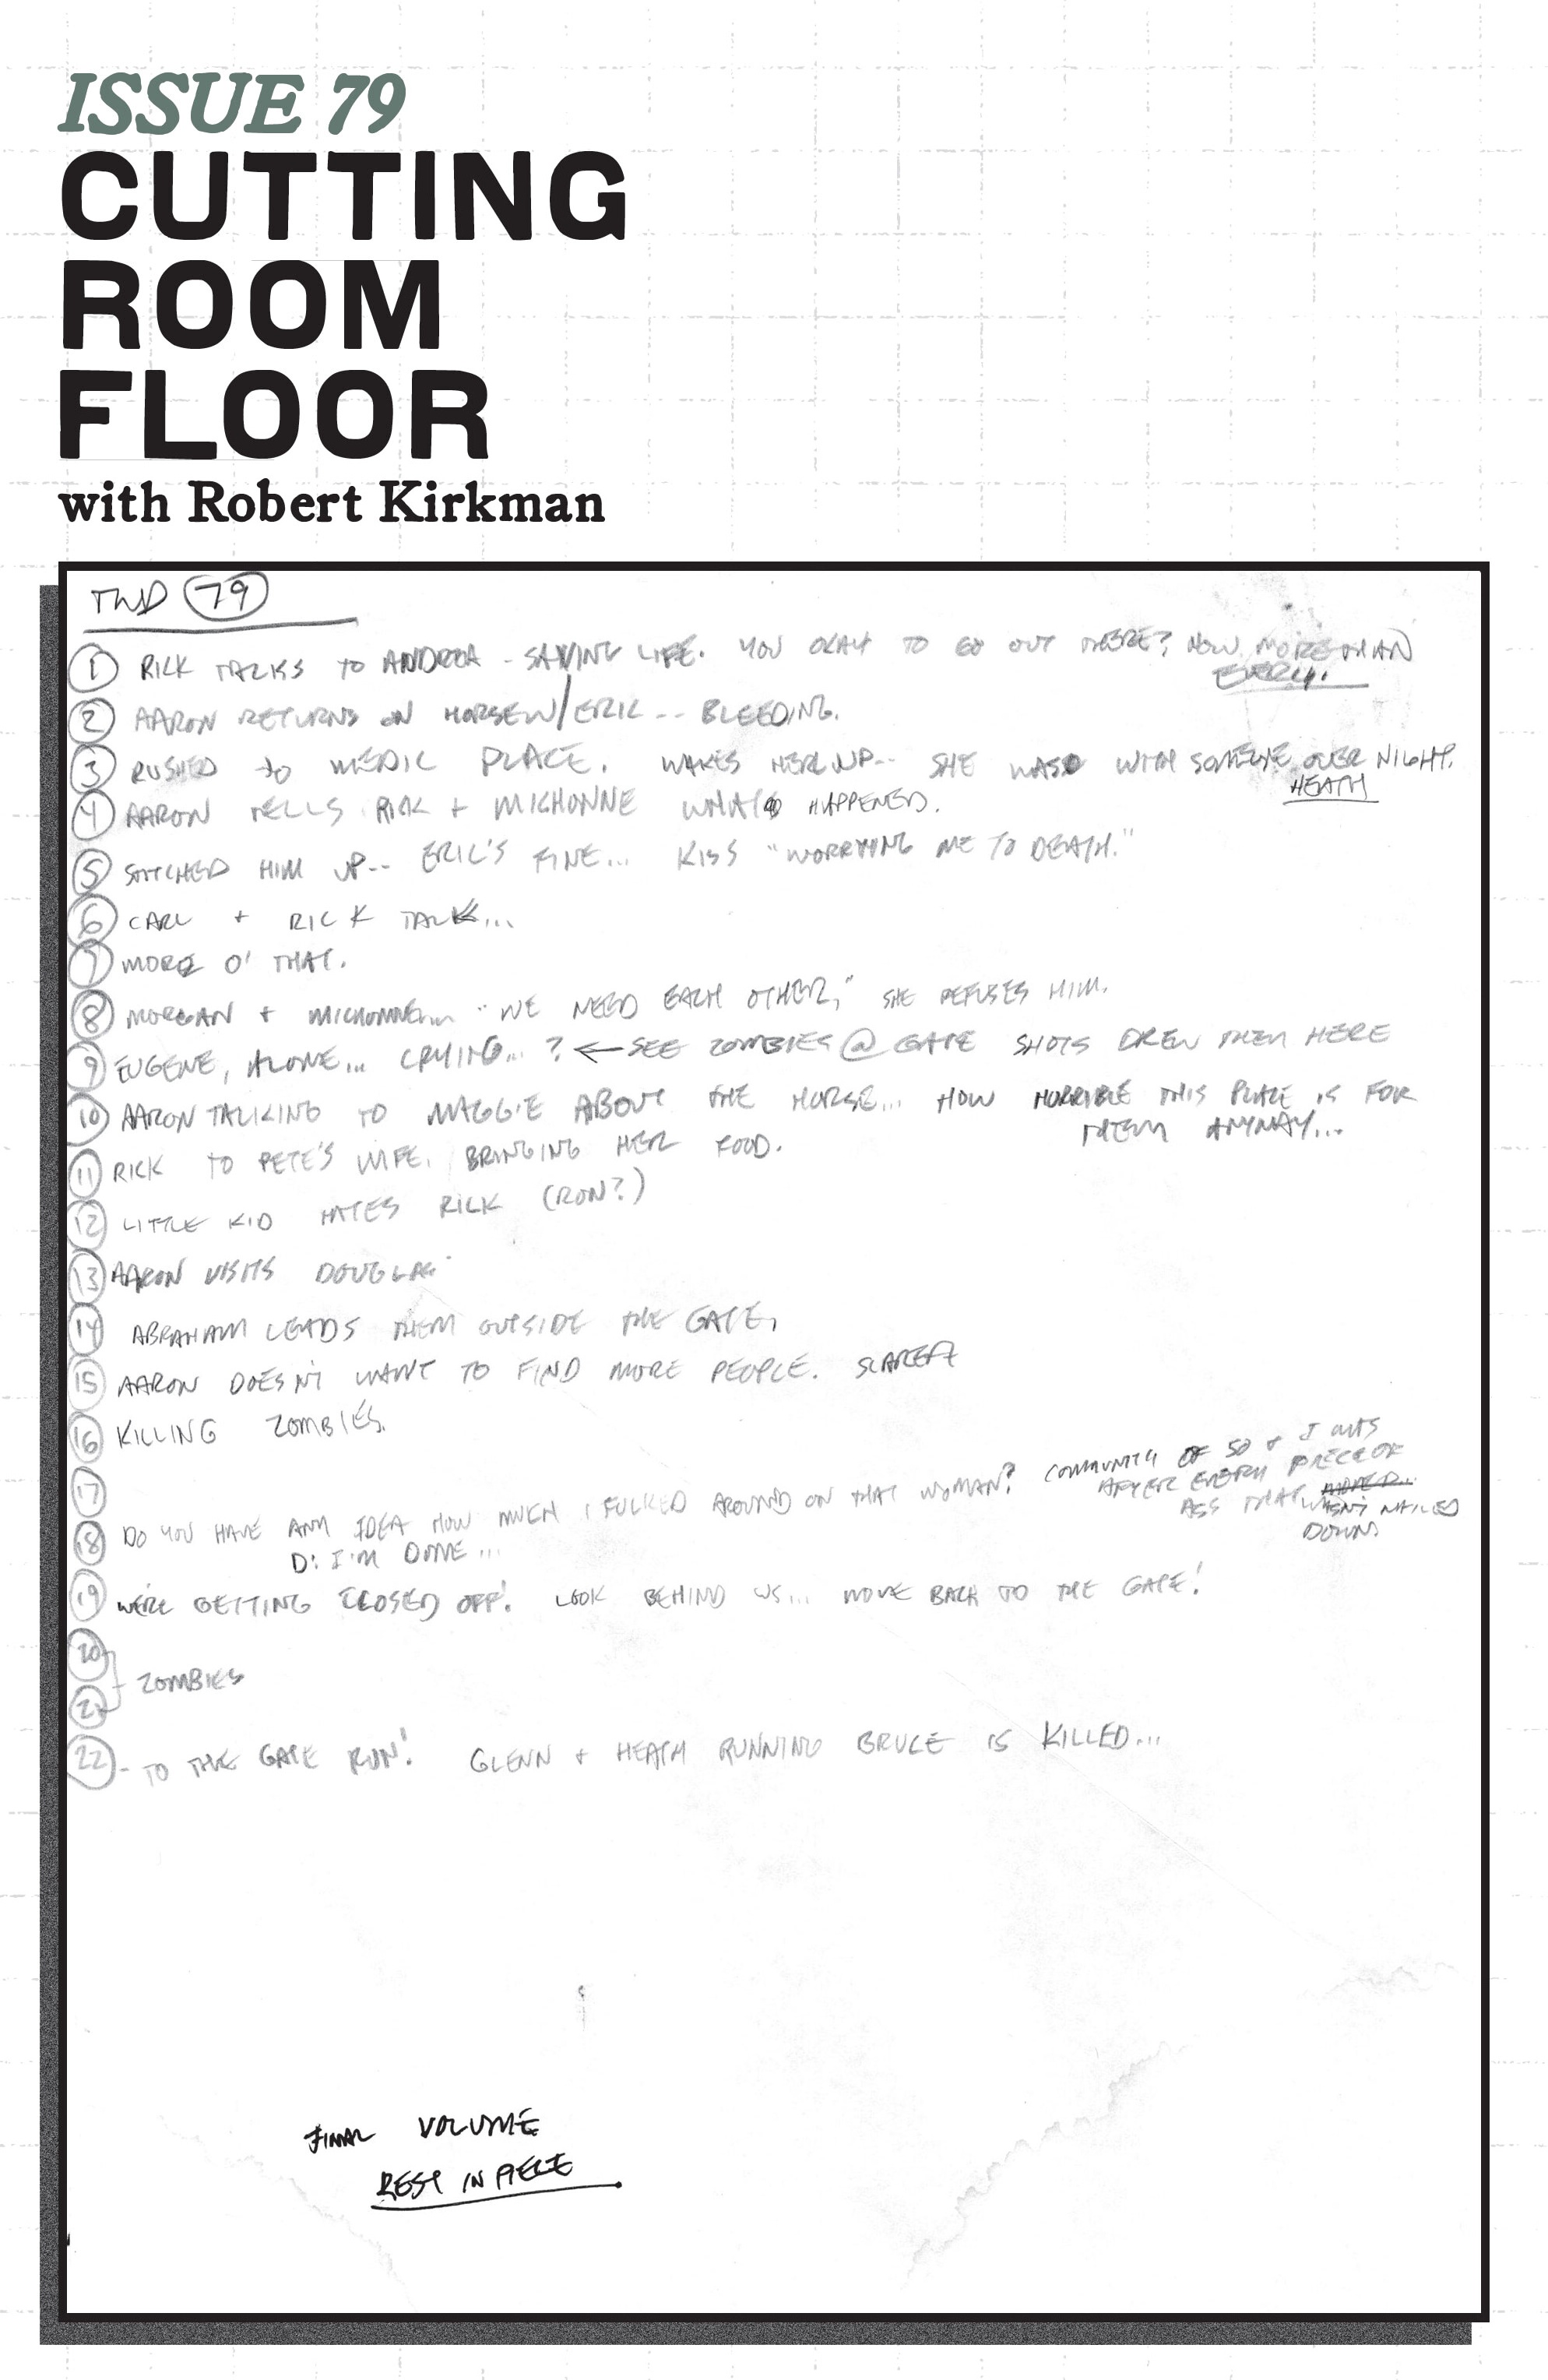 ISSUE 79
CUTTING
ROOM
FLOOR
with Robert Kirkman
TWD 79
1 RICK TALKS TO ANDREA - SAVING LIFE. YOU OKAY TO GO OUT THERE? NOW MORE THAN
EVER!!
2 AARON RETURNS ON HORSE W/ ERIC -- BLEEDING.
3 RUSHED TO MEDIC PLACE. WAKES HER UP-- SHE WAS WITH SOMEONE OVER NIGHT.
HEATH
4 AARON TELLS RICK + MICHONNE WHATS HAPPENED.
5 STITCHED HIM UP-- ERIC'S FINE... KISS "WORRYING ME TO DEATH."
6 CARL + RICK TALK...
7 MORE O' THAT.
8 MORGAN + MICHONNE... "WE NEED EACH OTHER," SHE REFUSES HIM.
9 EUGENE, ALONE... CRYING... ? ← SEE ZOMBIES @ GATE SHOTS DREW THEM HERE
10 AARON TALKING TO MAGGIE ABOUT THE HORSE... HOW HORRIBLE THIS PLACE IS FOR
THEM ANYWAY...
11 RICK TO PETE'S WIFE. BRINGING HER FOOD.
12 LITTLE KID HATES RICK (RON?)
13 AARON VISITS DOUGLAS
14 ABRAHAM LEADS THEM OUTSIDE THE GATE,
15 AARON DOESN'T WANT TO FIND MORE PEOPLE. SCARED
16 KILLING ZOMBIES.
17
18 DO YOU HAVE ANY IDEA HOW MUCH I FUCKED AROUND ON THAT WOMAN? COMMUNITY OF 50 + I WAS
AFTER EVERY PIECE OF
ASS THAT WASN'T NAILED
DOWN.
D: I'M DONE...
19 WE'RE GETTING CLOSED OFF! LOOK BEHIND US... MOVE BACK TO THE GATE!
20
21 ZOMBIES
22 - TO THE GATE RUN! GLENN + HEATH RUNNING BRUCE IS KILLED...
FINAL VOLUME
REST IN PIECE